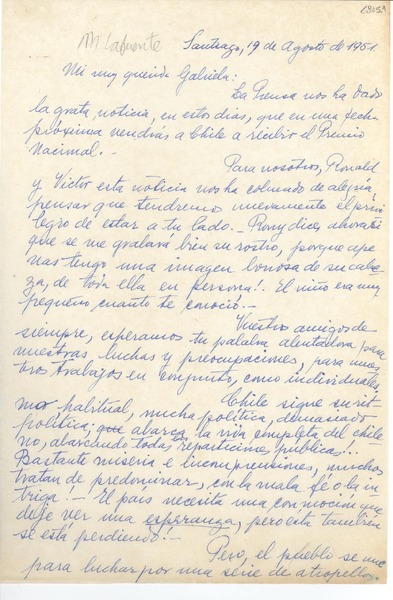 M Lafuente
Santiago, 19 de Agosto de 1951.
Mi muy querida Gabriela:
La Prensa nos ha dado
la grata noticia, en estos días, que en una fecha
próxima vendrás a Chile a recibir el Premio
Nacional.-
Para nosotros, Ronald
y Victor esta noticia nos ha colmado de alegría,
pensar que tendremos nuevamente el privi
legio de estar a tu lado.- Rony dice, ahora sí
que se me gravará bien su rostro, porque ape
nas tengo una imagen borrosa de su cabe
za, de toda ella en persona!. El niño era muy
pequeño cuanto te conoció.-
Vuestros amigos de
siempre, esperamos tu palabra alentadora para
nuestras luchas y preocupaciones, para nues
tros trabajos en conjunto, como individuales.
Chile sigue su rit
mo habitual, mucha política, demasiado
política; que abarca la vida completa del chile
no, abarcando toda, reparticiones públicas!..
Bastante miseria e incomprensiones, muchos
tratan de predominar, con la mala fé o la in
triga!- El país necesita una conmoción que
deje ver una esperanza, pero ésta también
se está perdiendo!-
Pero, el pueblo se une
para luchar por una serie de atropellos.